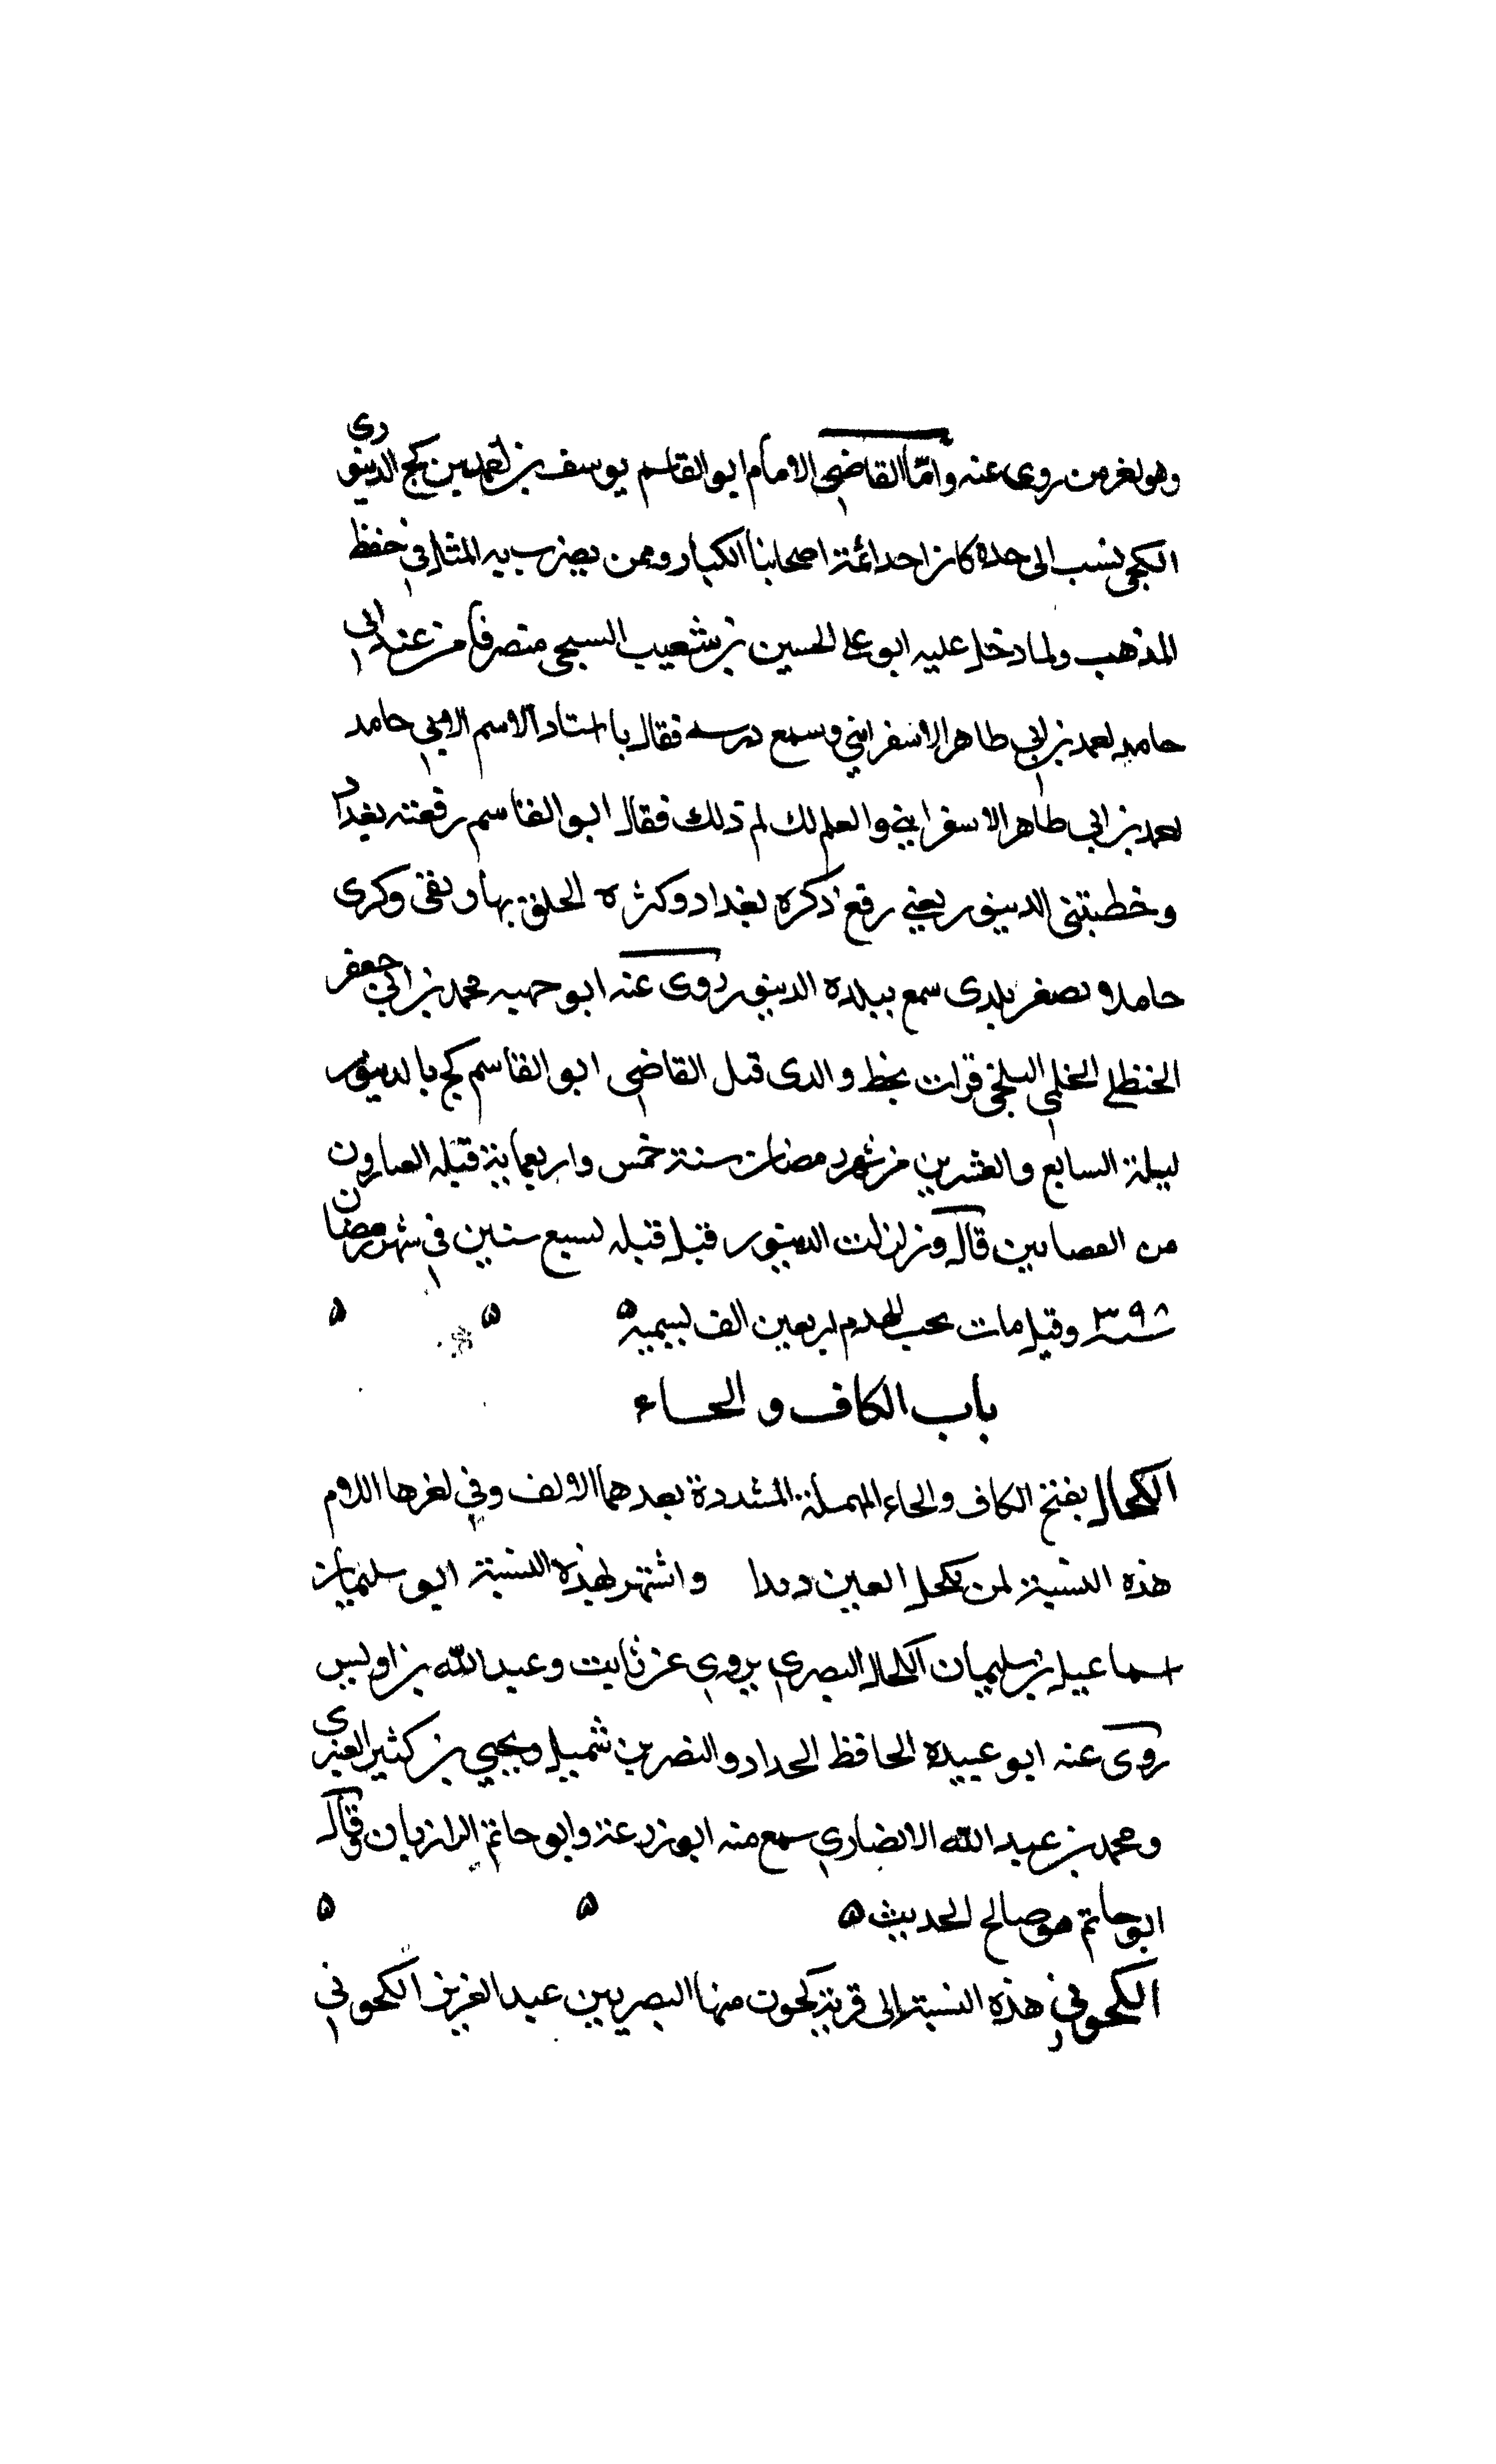 وهو اخر من روى عنه واما القاضى الامام ابو القاسم يوسف بن احمد بن كج الدينورى
الكجى نسب الى جده كان احد ائمة اصحابنا الكبار وممن يضرب به المثل فى حفظ
المذهب ولما دخل عليه ابو على الحسين بن شعيب السبجى منصرفا من عند ابى
حامد احمد بن ابى طاهر الاسفراينى وسمع درسه فقال يا استاد الاسم لابى حامد
احمد بن ابى طاهر الاسفراينى والعلم لك لم ذلك فقال ابو القاسم رفعته بغداد
وخطتنى الدينور يعنى رفع ذكره بغداد وكثرة الخلق بها وبقى ذكرى
خاملا بصغر بلدى سمع ببلده الدينور روى عنه ابو محمد بن ابى جعفر
الحنظلى الخلمى البلخى قرات بخط والدى قتل القاضى ابو القاسم كج بالدينور
ليلة السابع والعشرين من شهر رمضان سنة خمس واربعماية قتله العيارون
من قال وزلزلت الدينور قبل قتله لسبع سنين فى شهر رمضان
سنة ٣٩٨ وقيل مات تحت الهدم اربعين الف نسمة ه ه ه
باب الكاف والحاء
الكحال بفتح الكاف والحاء المهملة المشددة بعدهما الالف وفى اخرها اللام
هذه النسبة لمن يكحل العين واشتهر بهذه النسبة ابو سليمان
اسماعيل بن سليمان الكحال البصرى يروى عن ثابت وعبد الله بن اويس
روى عنه ابو عبيدة الحافظ الحداد والنضر بن شميل ويحيى بن كثير العنبرى
ومحمد بن عبد الله الانصارى سمع منه ابو زرعة وابو حاتم الرازيان قال
ابو حاتم هو صالح الحديث ه ه ه
الكحونى هذه النسبة الى قرية كحون منها البصر بن عبد العزيز الكحونى